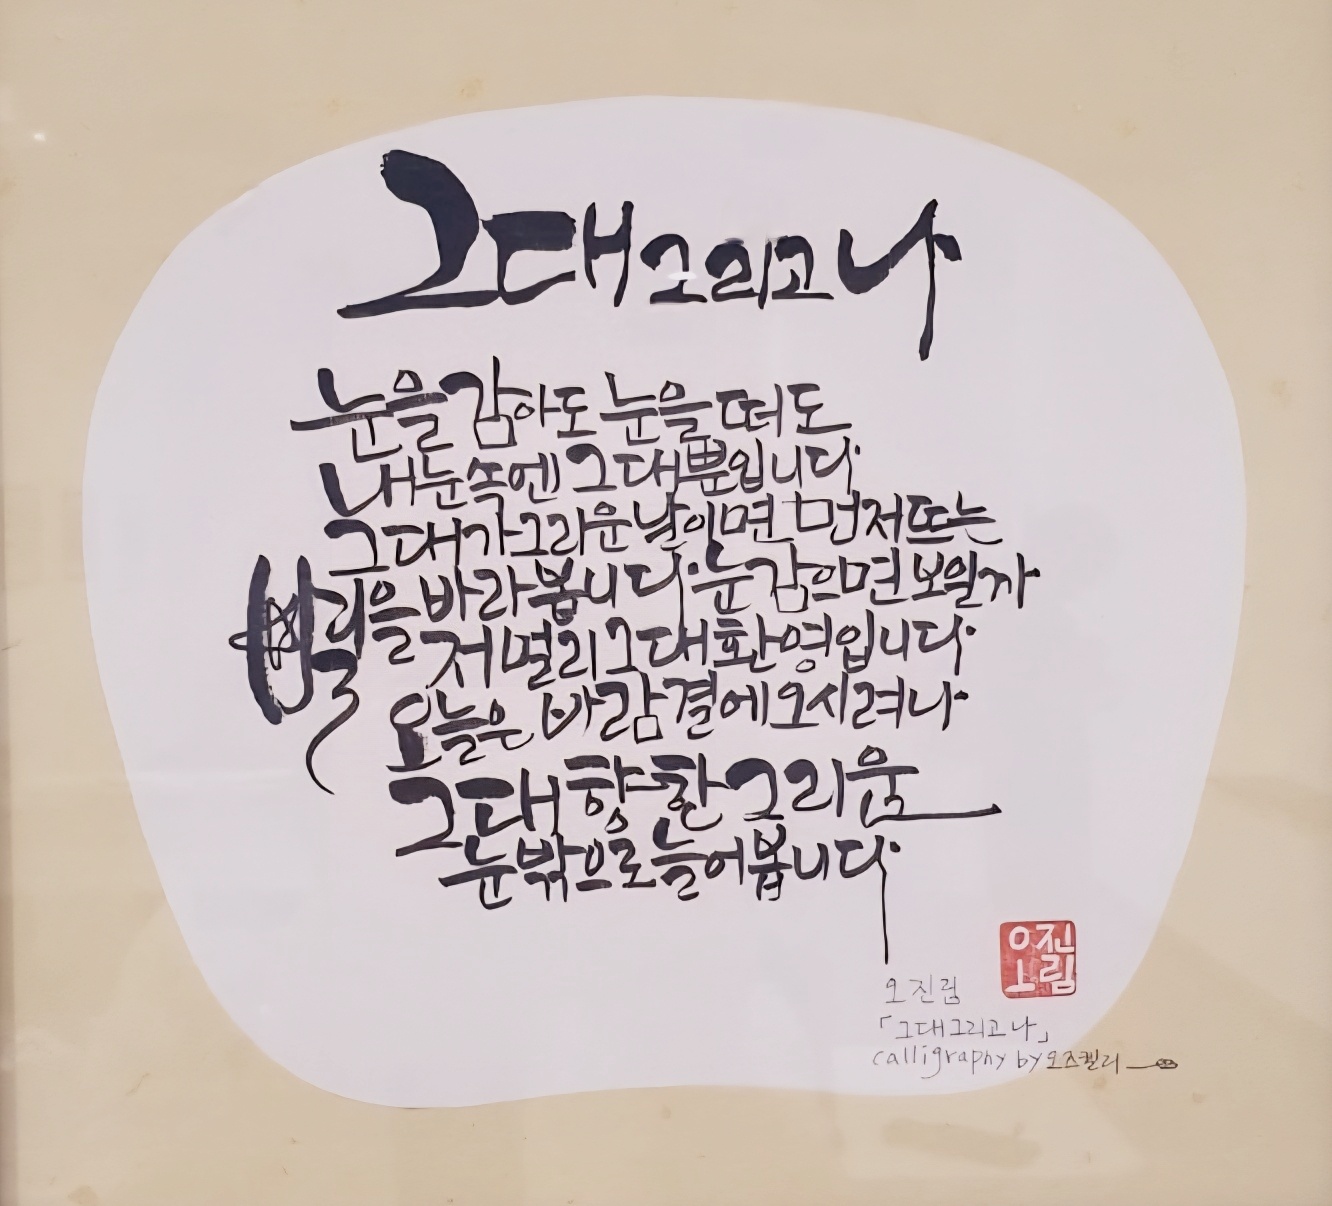 그대 그리고 나
눈을 감아도 눈을 떠도
내 눈 속엔 그대뿐입니다.
그대가 그리운 날이면 먼저 뜨는
별리을 바라봅니다. 눈 감으면 보일까
저 멀리 그대 환영입니다.
오늘은 바람결에 오시려나
그대 향한 그리움
눈 밖으로 늘어봅니다.
오진림
오진림
「그대 그리고 나」
calligraphy by 오즈켈리